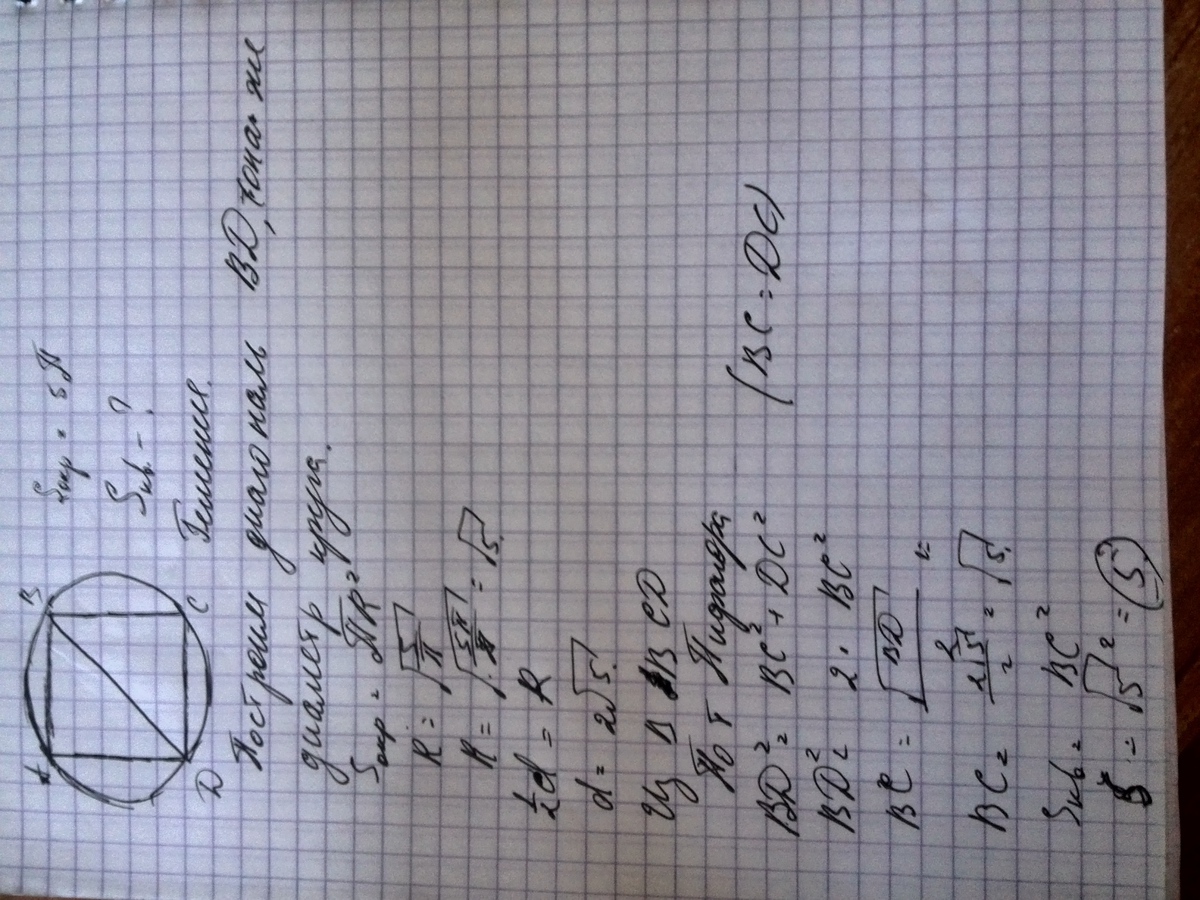 A B
D C
Sокр = 5π
Sкв. - ?
Решение.
Построим диагональ BD, она же
диаметр круга.
Sокр = πR²
R = √(S/π)
R = √(5π/π) = √5.
½d = R
d = 2√5.
Из BCD
По т Пифагора
BD² = BC² + DC² (BC = DC)
BD² = 2 · BC²
BC = √BD
2
BC = 2√5/2 = √5.
Sкв = BC²
S = √5² = 5